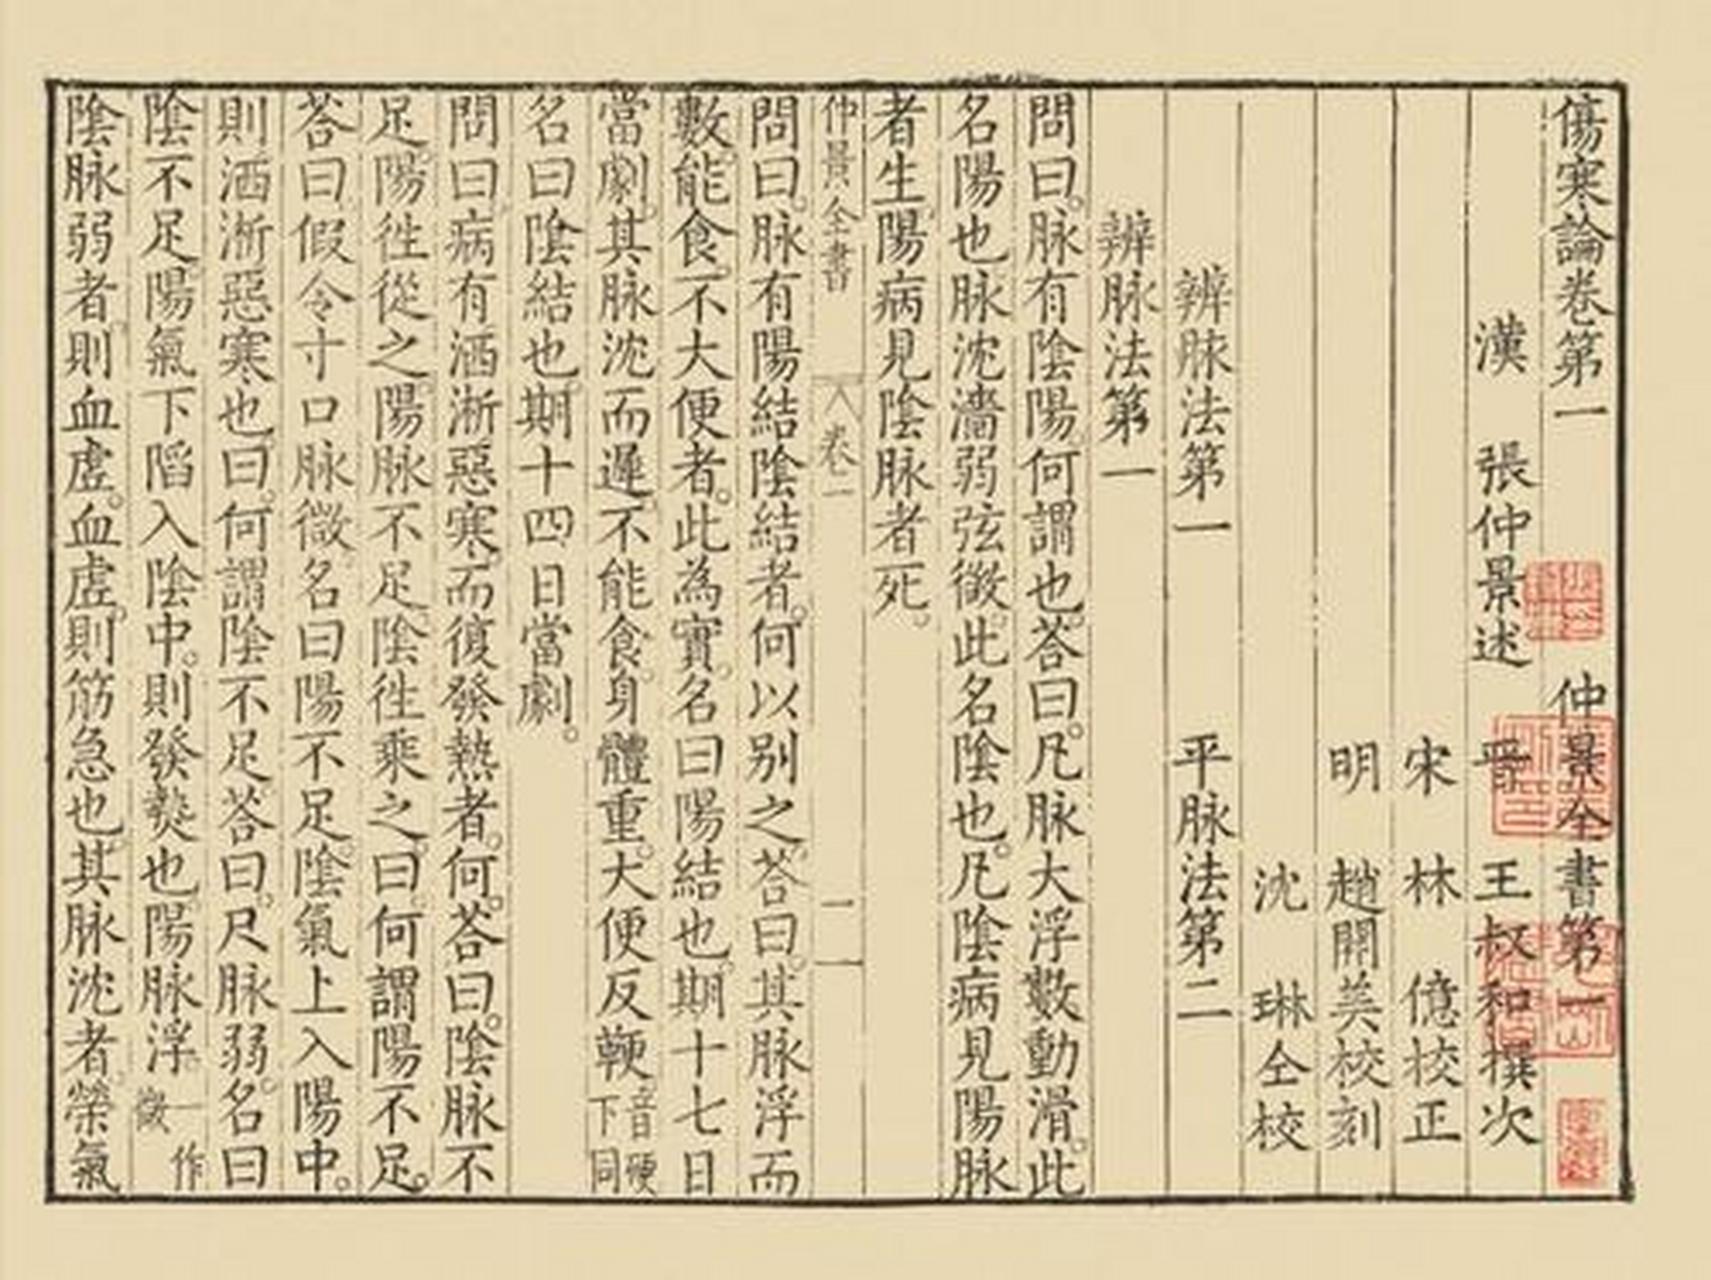 傷寒論卷第一 仲景全書第一
漢 張仲景述 晉 王叔和撰次
宋 林 億挍正
明 趙開美校刻
沈 琳仝校
辨脉法第一 平脉法第二
辨脉法第一
問曰。脉有陰陽。何謂也。荅曰。凡脉大浮數動滑。此
名陽也。脉沈濇弱弦微。此名陰也。凡陰病見陽脉
者生。陽病見陰脉者死。
仲景全書 卷一 一
問曰。脉有陽結陰結者。何以别之。荅曰。其脉浮而
數。能食。不大便者。此為實。名曰陽結也。期十七日
當劇。其脉沈而遲。不能食。身體重。大便反鞕音硬下同
名曰陰結也。期十四日當劇。
問曰。病有洒淅惡寒。而復發熱者。何。荅曰。陰脉不
足。陽徃從之。陽脉不足。陰徃乘之。曰。何謂陽不足。
荅曰。假令寸口脉微。名曰陽不足。陰氣上入陽中。
則洒淅惡寒也。曰。何謂陰不足。荅曰。尺脉弱。名曰
陰不足。陽氣下陷入陰中。則發熱也。陽脉浮。一作微
陰脉弱者。則血虛。血虛。則筋急也。其脉沈者。榮氣